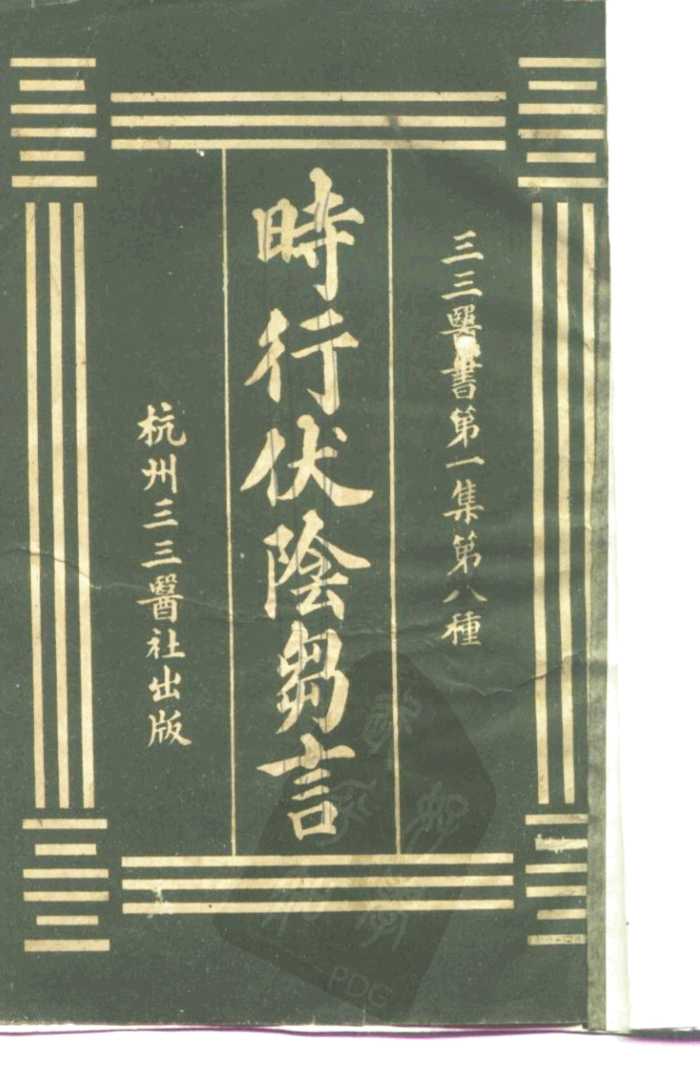 三三醫書第一集第八種
時行伏陰芻言
杭州三三醫社出版
PDG